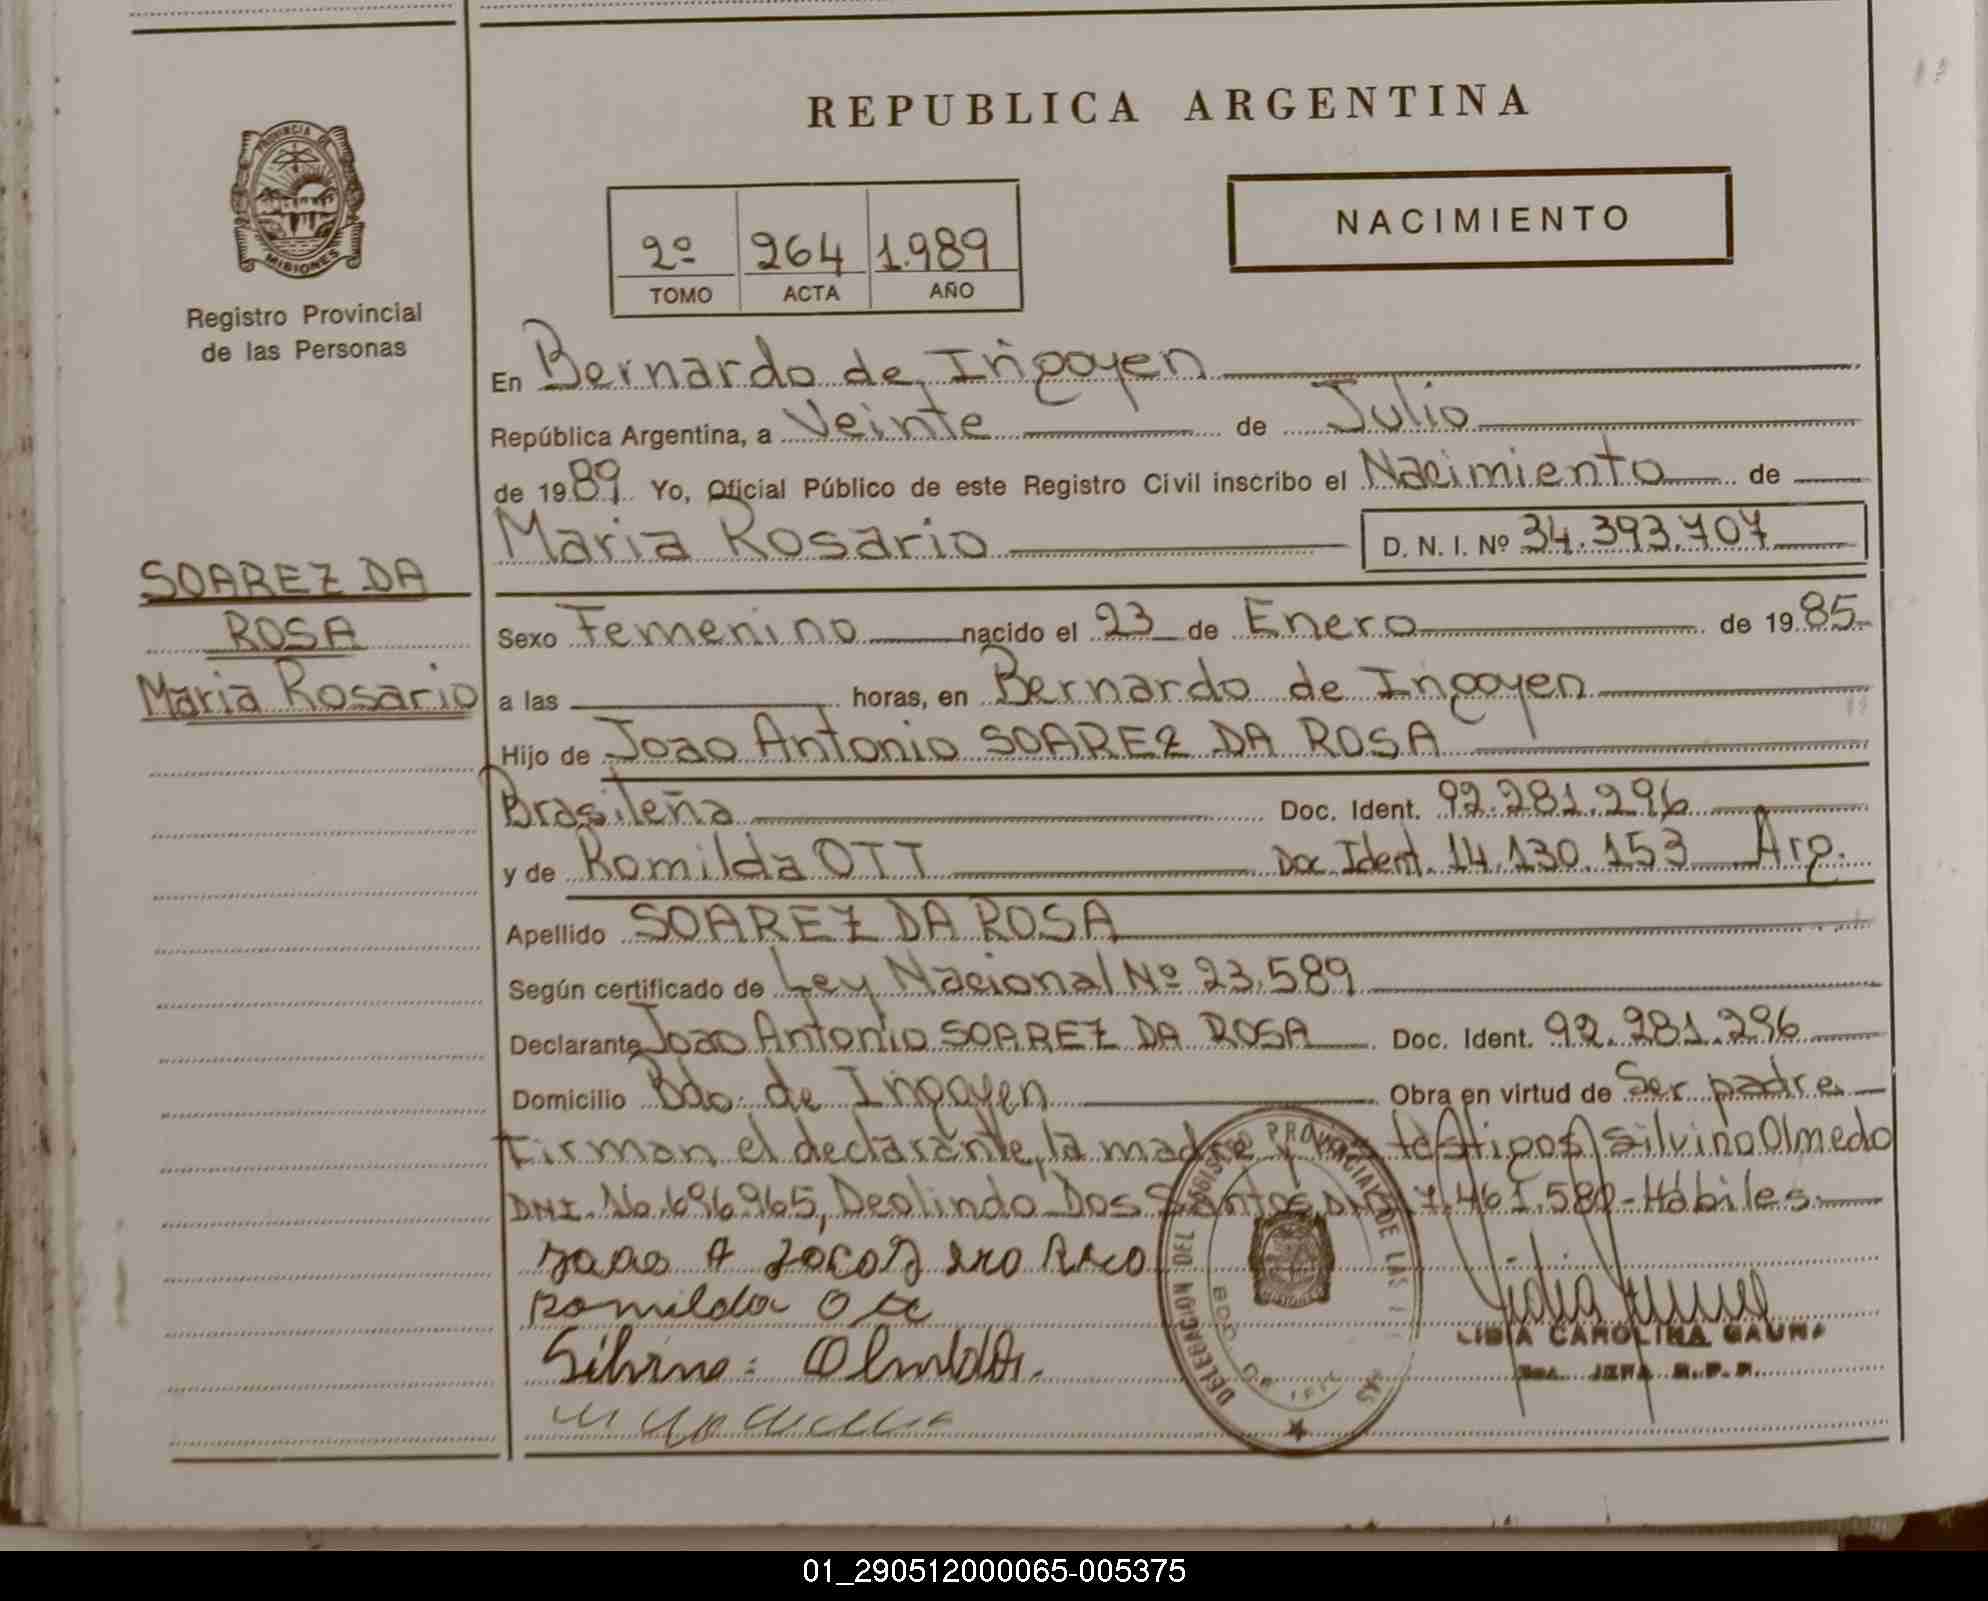 REPUBLICA ARGENTINA
NACIMIENTO
2º 264 1.989
TOMO ACTA AÑO
PROVINCIA DE
MISIONES
Registro Provincial
de las Personas
SOAREZ DA
ROSA
Maria Rosario
En Bernardo de Irigoyen
República Argentina, a Veinte de Julio
de 1989. Yo, Oficial Público de este Registro Civil inscribo el Nacimiento de
Maria Rosario D. N. I. Nº 34.393.707
Sexo Femenino nacido el 23 de Enero de 1985
a las horas, en Bernardo de Irigoyen
Hijo de Joao Antonio SOAREZ DA ROSA
Brasileña Doc. Ident. 92.281.296
y de Romilda OTT Doc. Ident. 14.130.153 Arg.
Apellido SOAREZ DA ROSA
Según certificado de Ley Nacional Nº 23.589
Declarante Joao Antonio SOAREZ DA ROSA Doc. Ident. 92.281.296
Domicilio Bdo. de Irigoyen Obra en virtud de Ser padre
Firman el declarante, la madre y testigos Silvino Olmedo
DNI. 16.696.965, Deolindo Dos Santos, DNI 7.461.582 - Hábiles
Romilda Ott
Silvino Olmedo
DELEGACION DEL REGISTRO PROVINCIAL DE LAS
BDO. DE IRIG
LIDIA CAROLINA GAUNA
JEFA R.P.P.
01_290512000065-005375